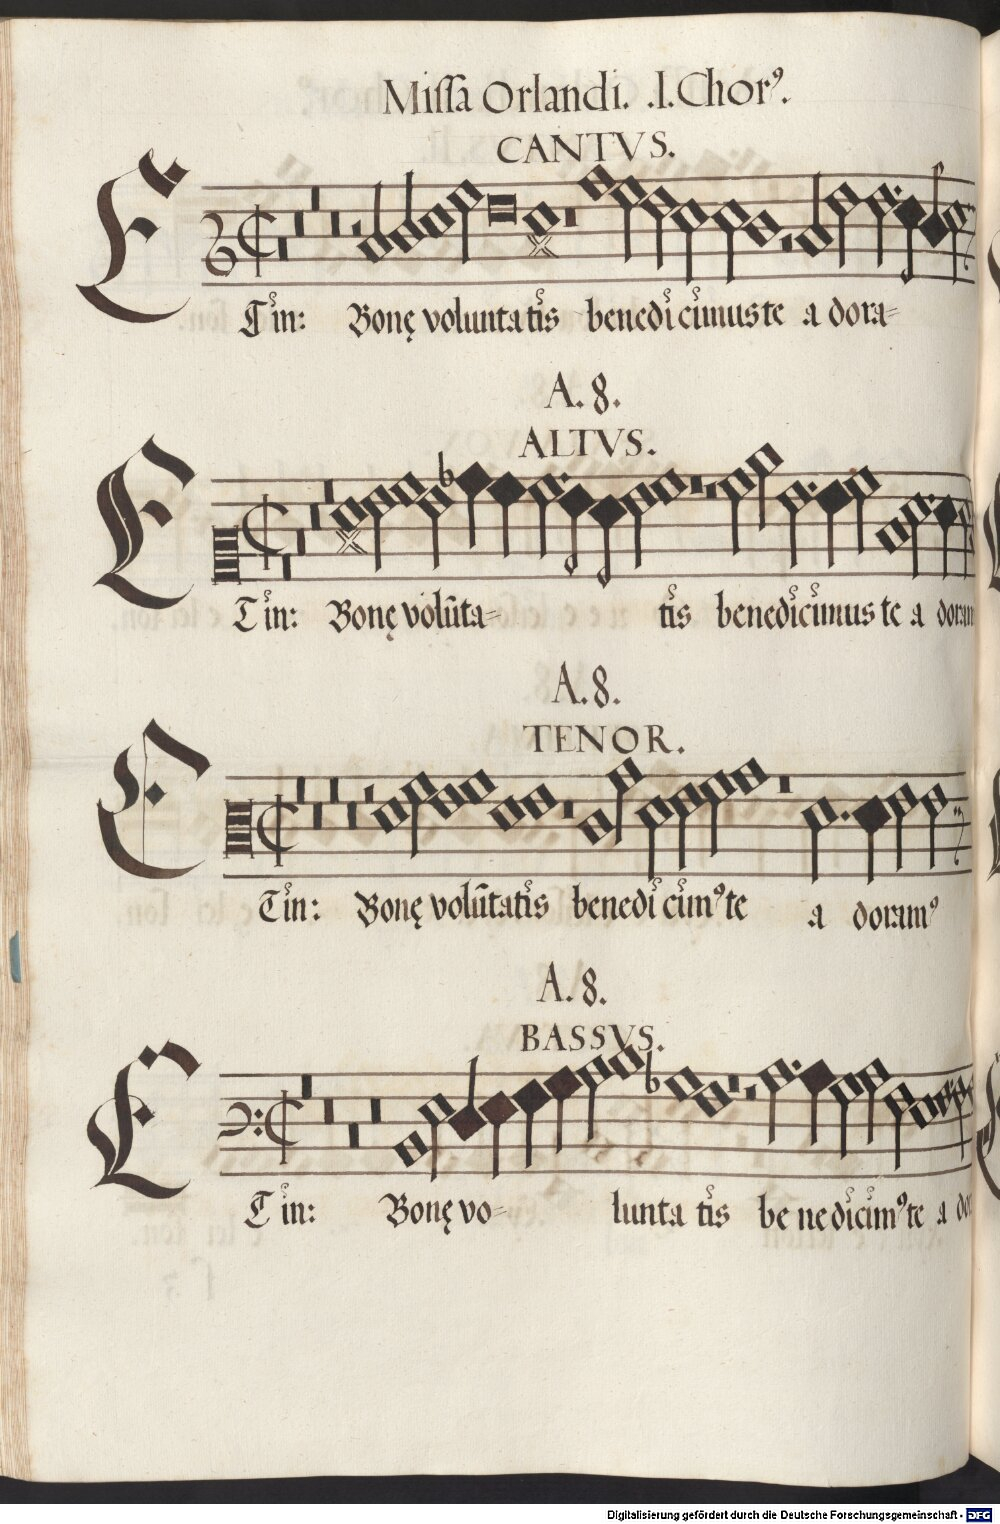 Missa Orlandi. .I. Chorꝰ.
CANTVS.
Et in: Bonę voluntatis benedicimus te adora=
A. 8.
ALTVS.
Et in: Bonę volūta= tis benedicimus te adoram
A. 8.
TENOR.
Et in: Bonę volūtatis benedicimꝰ te a doramꝰ
A. 8.
BASSVS.
Et in: Bonę vo= luntatis benedicimꝰ te a do
Digitalisierung gefördert durch die Deutsche Forschungsgemeinschaft - DFG